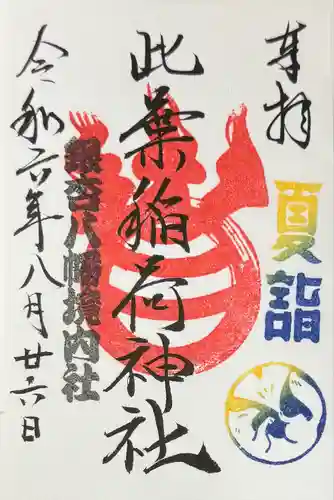 奉拝
夏詣
此葉稲荷神社
鎮守八幡境内社
令和六年八月廿六日